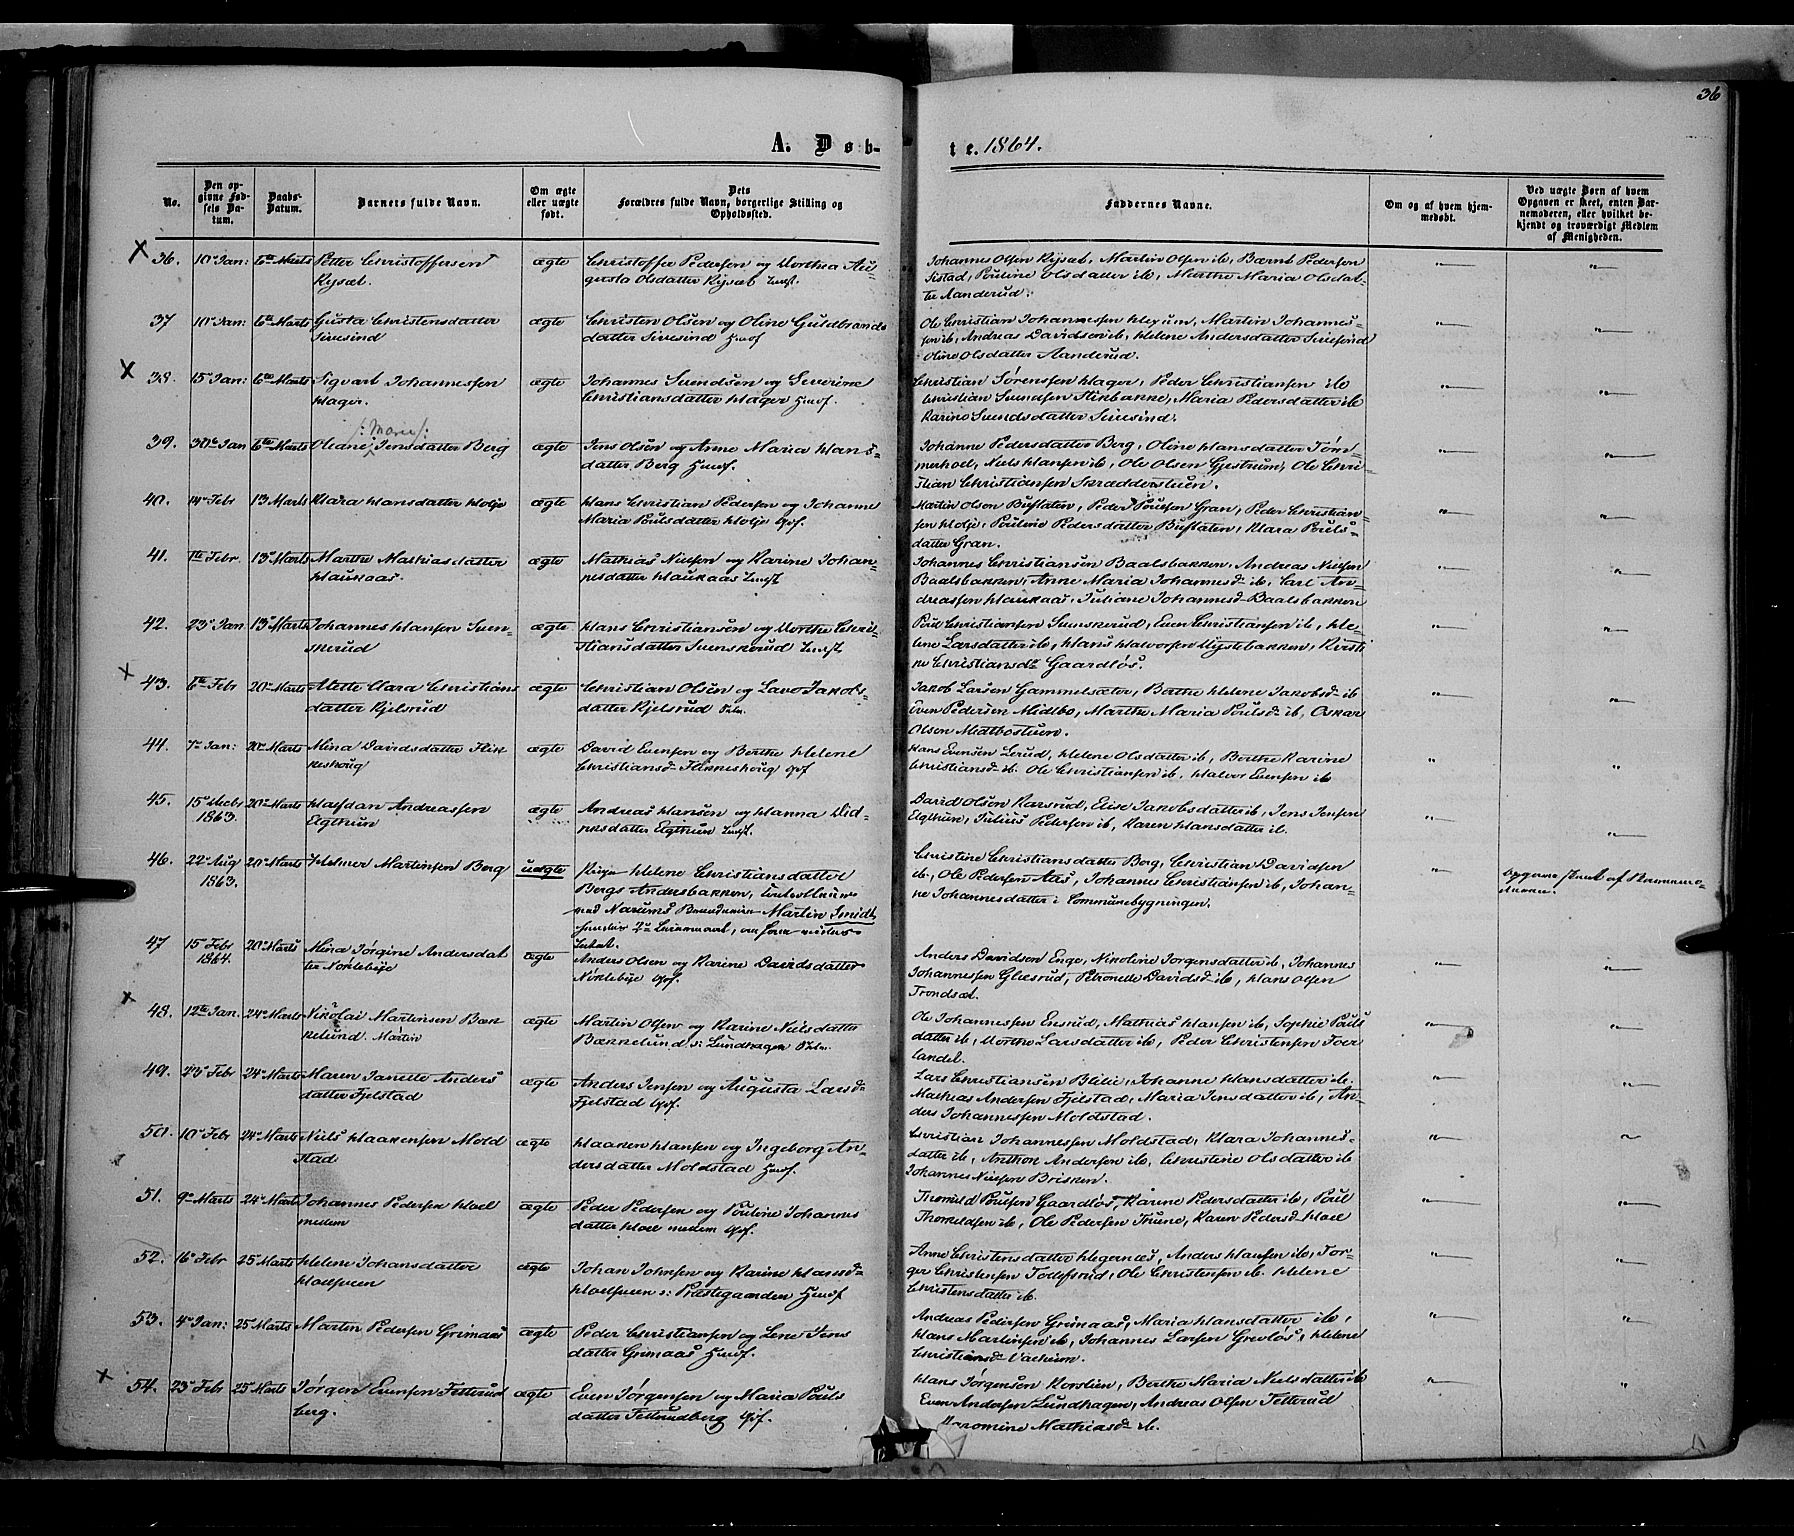 36
A. Døb-
te. 1864.
No.
Den op-
givne Fød-
sels Da-
tum.
Daabs-
Datum.
Barnets fulde Navn.
Om ægte
eller uægte
født.
Dets
Forældres fulde Navn, borgerlige Stilling og
Opholdssted.
Faddernes Navne.
Om og af hvem hjem-
medøbt.
Ved uægte Børn af hvem
Opgaven er skeet, enten Bar-
nemoderen, eller hvilket be-
kjendt og troværdigt Medlem
af Menigheden.
X 36. 10de Jan: 6te Marts Petter Christoffersen ægte Christoffer Pedersen og Dorthea Au-
Rysæt. gusta Olsdatter Rysæt
Johannes Olsen Rysæt, Martin Olsen ib, Bærnt Pedersen
Sistad, Pouline Olsdatter ib, Marthe Maria Olsdat-
ter Aanderud.
37 10de Jan: 6te Marts Gusta Christensdatter ægte Christen Olsen og Oline Guldbrands
Sivesind datter Sivesind Husf
Ole Christian Johannessen Hexum, Martin Johannes-
sen ib, Andreas Davidsen ib, Helene Andersdatter Sivesind
Oline Olsdatter Aanderud.
X 38. 15de Jan: 6te Marts Sigvart Johannessen ægte Johannes Svendsen og Severine
Hager. Christiansdatter Hager Husf.
Christian Sørenssen Hager, Peder Christiansen ib
Christian Svendsen Stikbakke, Maria Pedersdatter ib
Karine Svendsdatter Sivesind.
39. 30te Jan 6te Marts Oliane /: Marie :/ Jensdatter Berg ægte Jens Olsen og Anne Maria Hans-
datter Berg Husf.
Johanne Pedersdatter Berg, Oline Hansdatter Tøm-
merhoel, Niels Hansen ib, Ole Olsen Gjestrum, Ole Chri-
stian Christiansen Skræddersteien.
40. 14de Febr 13 Marts Klara Hansdatter Holje ægte Hans Christian Pedersen og Johanne
Maria Poulsdatter Holje Gbf.
Martin Olsen Buflaten, Peder Poulsen Gran, Peder Christian-
sen Holje, Pouline Pedersdatter Buflaten, Klara Pouls-
datter Gran.
41. 1te Febr. 13de Marts Marthe Mathiasdatter ægte Mathias Nielsen og Karine Johan-
Haukaas. nesdatter Haukaas
Johannes Christiansen Baalsbakken, Andreas Nielsen
Baalsbakken, Anne Maria Johannesdr ib, Carl An-
dreassen Haukaas, Juliane Johannesdr Baalsbakken
42. 23de Jan 13de Marts Johannes Hansen Svens- ægte Hans Christiansen og Dorthe Chri-
kerud stiansdatter Svenskerud
Poul Christiansen Svenskerud, Even Christiansen ib, He-
lene Larsdatter ib, Hans Halvorsen Nystebakken, Kirsti
ne Christiansdr Gaardløs.
X 43. 6te Febr 20de Marts Mette Clara Christians ægte Christian Olsen og Lava Jakobs-
datter Kjelsrud datter Kjelsrud
Jakob Larsen Gammelsæter, Berthe Helene Jakobsdr ib
Even Pedersen Midtbø, Marthe Maria Poulsdr ib, Oskar
Olsen Midtbøstuen.
44. 7de Jan: 20de Marts Mina Davidsdatter Flik ægte David Evensen og Berthe Helene
keshoug Christiansdr Flikkeshoug Gbf
Hans Evensen Lerud, Helene Olsdatter ib, Berthe Karine
Christiansdr ib. Ole Christiansen ib. Halvor Evensen ib
45. 15de Decbr 20de Marts Halfdan Andreassen ægte Andreas Hansen og Hanna Did-
1863. Elgthun riksdatter Elgthun
David Olsen Karsrud, Elise Jakobsdatter ib, Jens Jensen
Elgthun, Julius Pedersen ib, Karen Hansdatter ib.
46. 22de Aug 20de Marts Helmer Martinsen Berg uægte Pige Helene Christiansdatter
1863. Bergs Andersbakken,
Narums Brænderi Martin Smidt,
Christine Christiansdatter Berg, Christian Davidsen
ib, Ole Pedersen Aas, Johannes Christiansen ib, Johan-
ne Johannesdatter i Communebygningen.
Opgave skeet af Barnemo-
deren.
47 15de Febr 20de Marts Mina Jørgine Andersdat ægte Anders Olsen og Karine Davidsdatter
1864. ter Nørlebye Nørlebye Gbf.
Anders Davidsen Enge, Nikoline Jørgensdatter ib, Johannes
Johannessen Glæsrud, Petronelle Davidsdr ib, Hans Olsen
Trondsæt.
X 48. 12te Jan. 24de Marts Nikolai Martinsen Bæk- ægte Martin Olsen og Karine Nielsdatter
kelund. Martin Bækkelund v: Lundhagen
Ole Johannessen Ensrud, Mathias Hansen ib, Sophie Pouls
datter ib, Dorthe Larsdatter ib, Peder Christensen Foer
landet.
49. 23de Febr 24de Marts Maren Janette Anders ægte Anders Jensen og Augusta Larsdr
datter Fjelstad Fjelstad Gbf.
Lars Christiansen Bilie, Johanne Hansdatter ib.
Mathias Andersen Fjelstad, Maria Jensdatter ib, An-
ders Johannessen Moldstad.
50. 10de Febr 24de Marts Niels Haakensen Mold ægte Haaken Hansen og Ingeborg An-
stad dersdatter Moldstad Husf.
Christian Johannessen Moldstad, Klara Johannes-
datter ib, Anthon Andersen ib, Christine Olsdatter ib
Johannes Nielsen Brisken.
51. 9de Marts 24de Marts Johannes Pedersen Hoel ægte Peder Pedersen og Pouline Johannes
nedern datter Hoel nedern Gbf.
Thorvild Poulsen Gaardløs, Karine Pedersdatter ib, Poul
Thorvildsen ib, Ole Pedersen Thune, Karen Pedersdr Hoel
52. 16de Febr 25de Marts Helene Johansdatter ægte Johan Johnsen og Karine Hansdr
Hoelsveen Hoelsveen v: Præstegaarden Husf
Anne Christensdatter Hegernæs, Anders Hansen ib, Tor-
ger Christensen Tollefsrud, Ole Christensen ib. Helene
Christensdatter ib.
53. 4de Jan: 25de Marts Martin Pedersen Grimaas ægte Peder Christiansen og Lene Jens
datter Grimaas Husf.
Andreas Pedersen Grimaas, Maria Hansdatter ib,
Hans Martinsen ib, Johannes Larsen Grevløs, Helene
Christiansdr Vaeheim.
X 54. 23de Febr 25de Marts Jørgen Evensen Fetterud ægte Even Jørgensen og Maria Pouls
berg. datter Fetterudberg Gbf.
Hans Jørgensen Korslien, Berthe Maria Nielsdatter ib
Even Andersen Lundhagen, Andreas Olsen Tetterud
Jeromine Mathiasdr ib.